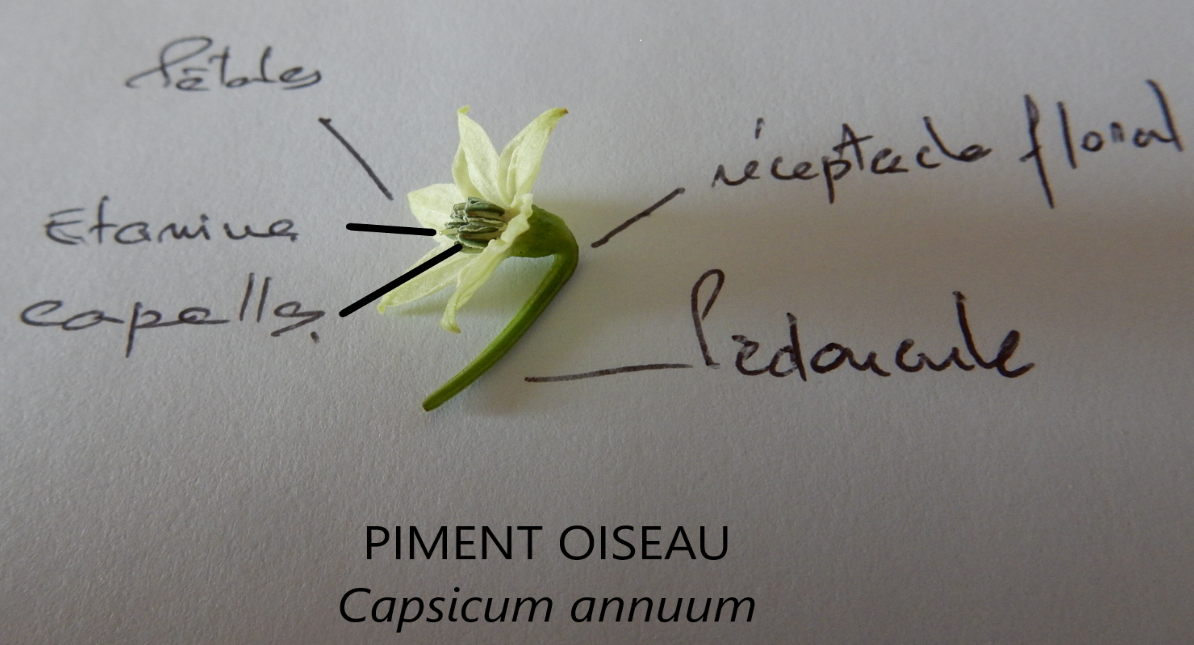 Pétales
réceptacle floral
Etamine
capelle
Pédoncule
PIMENT OISEAU
Capsicum annuum